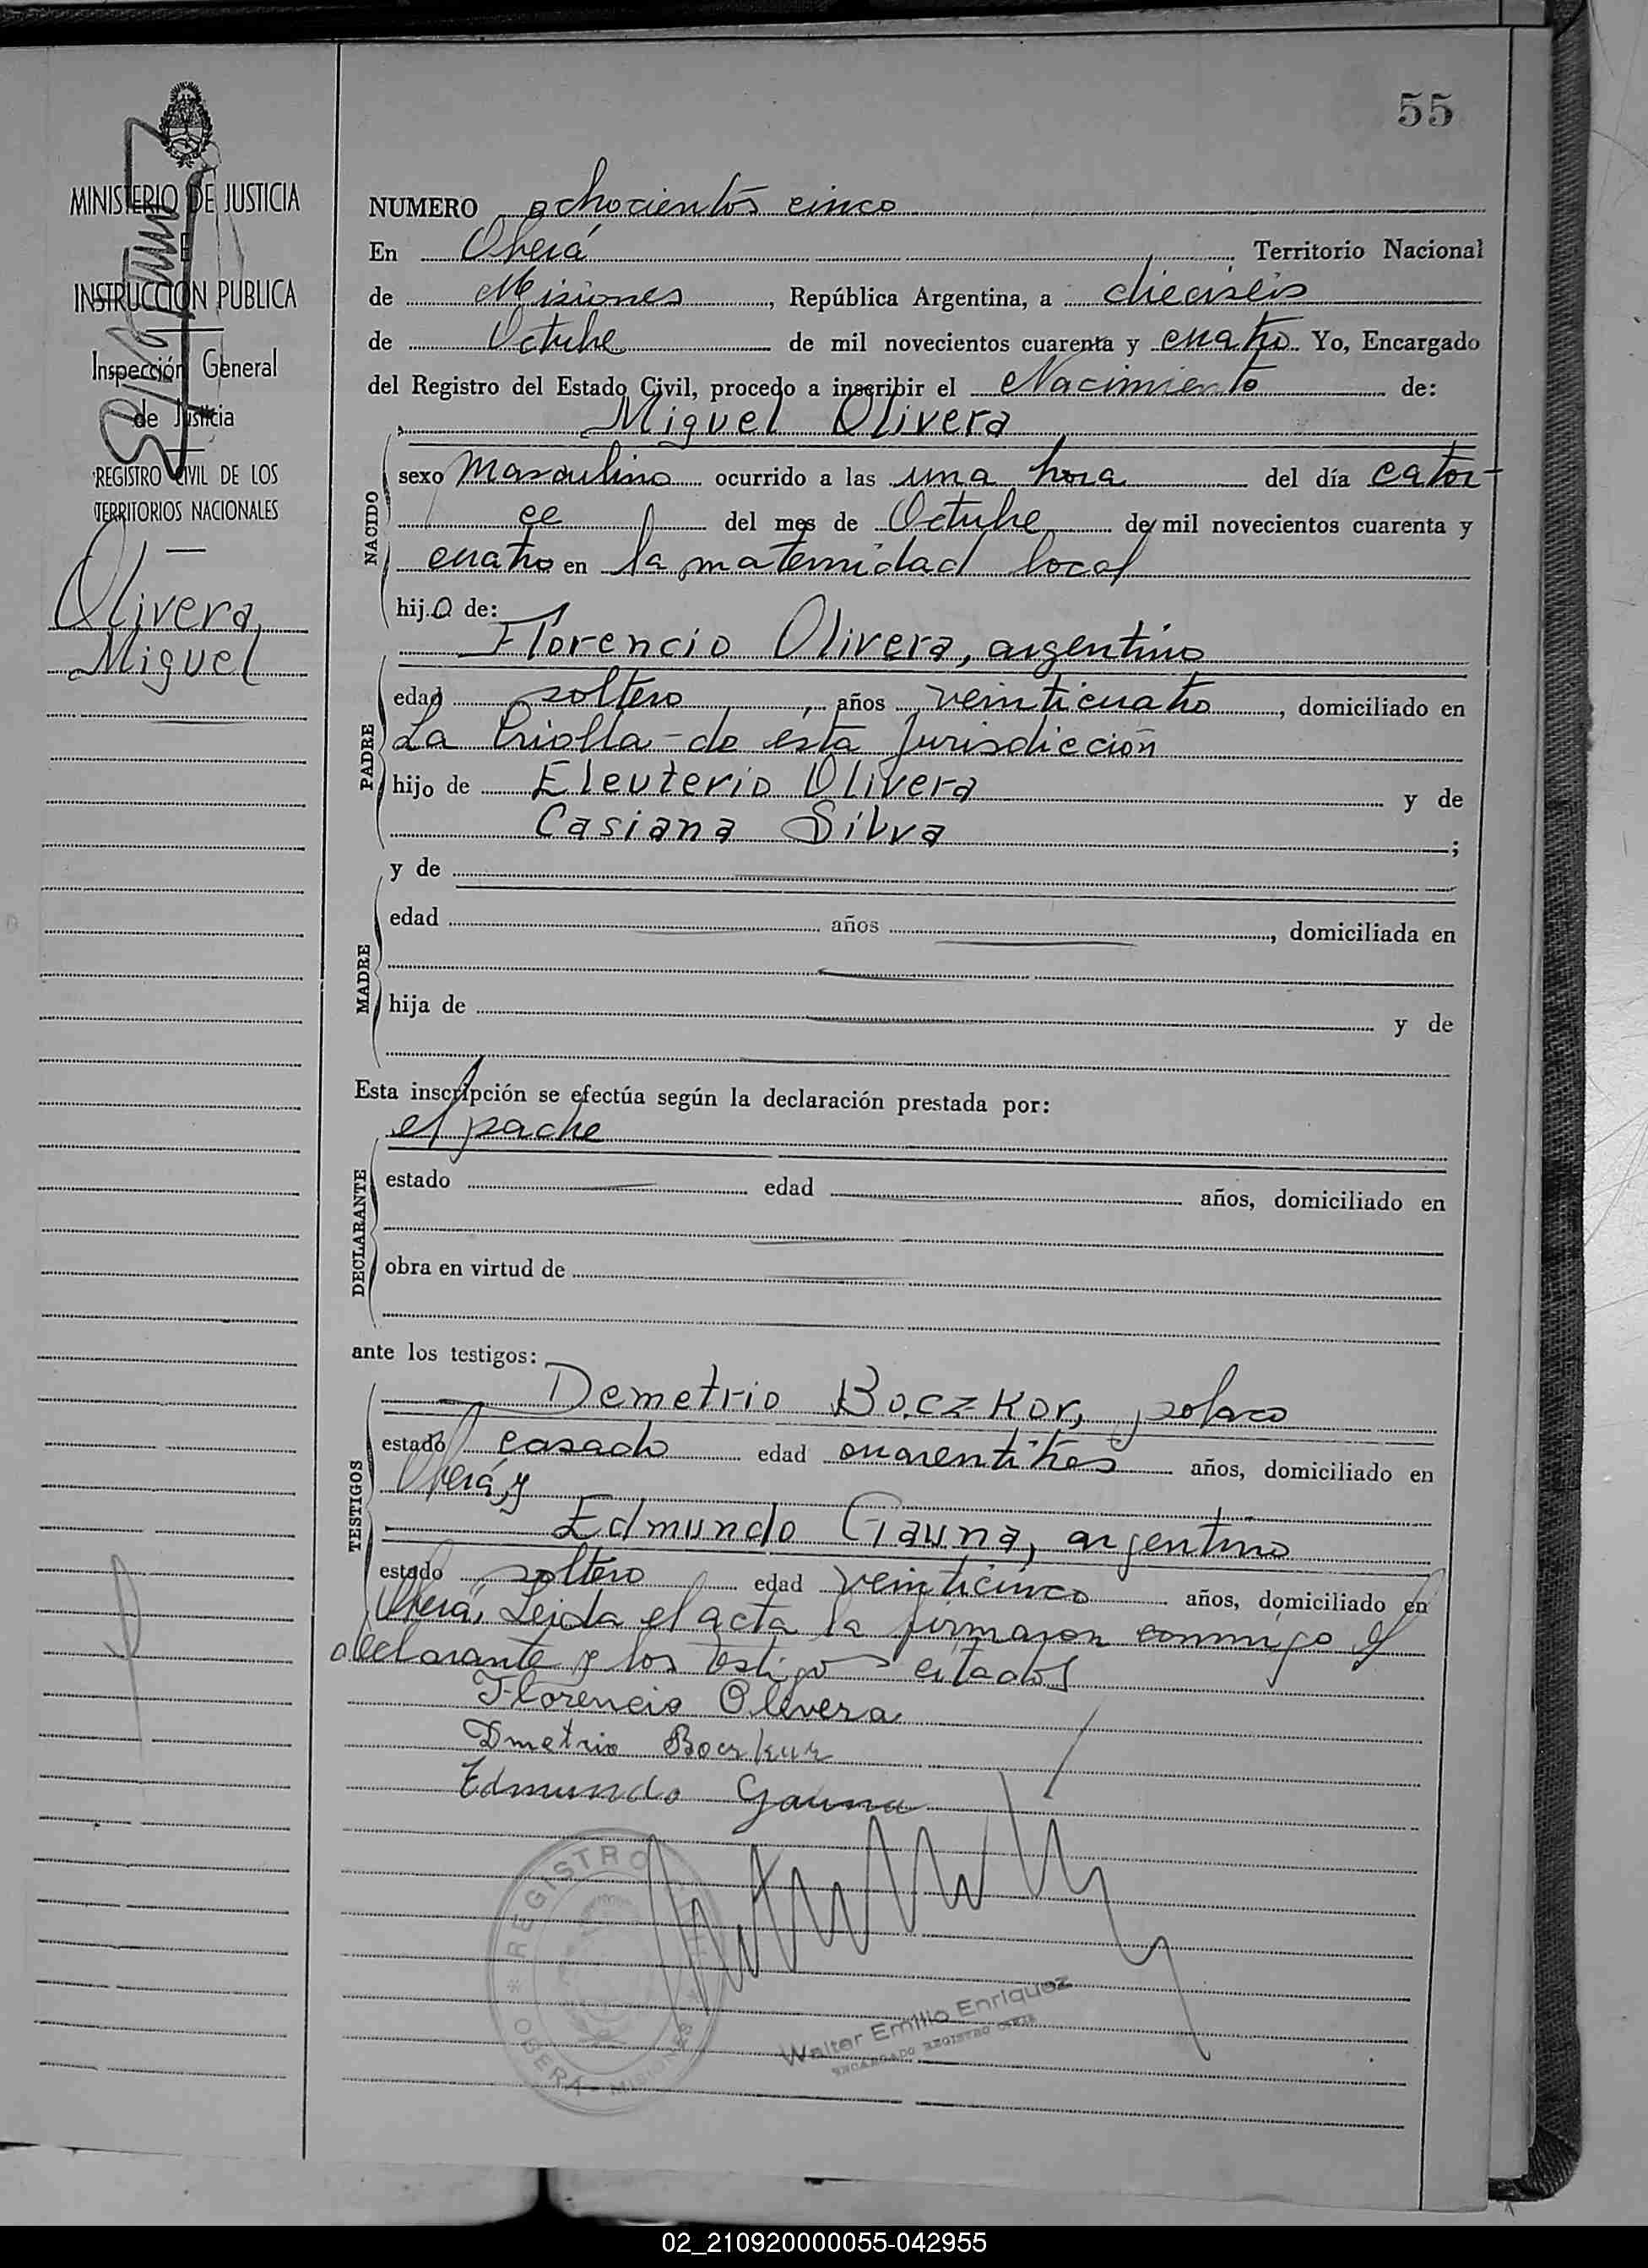 55
MINISTERIO DE JUSTICIA
E
INSTRUCCION PUBLICA
Inspección General
de Justicia
REGISTRO CIVIL DE LOS
TERRITORIOS NACIONALES
Olivera,
Miguel
NUMERO ochocientos cinco
En Oberá Territorio Nacional
de Misiones, República Argentina, a dieciseis
de Octubre de mil novecientos cuarenta y cuatro Yo, Encargado
del Registro del Estado Civil, procedo a inscribir el Nacimiento de:
Miguel Olivera
NACIDO
sexo Masculino ocurrido a las una hora del día cator-
ce del mes de Octubre de mil novecientos cuarenta y
cuatro en la maternidad local
hijo de:
Florencio Olivera, argentino
PADRE
edad soltero, años veinticuatro, domiciliado en
La Criolla - de ésta Jurisdicción
hijo de Eleuterio Olivera y de
Casiana Silva;
y de
MADRE
edad años, domiciliada en
hija de y de
Esta inscripción se efectúa según la declaración prestada por:
el padre
DECLARANTE
estado edad años, domiciliado en
obra en virtud de
ante los testigos:
Demetrio Boczkor, polaco
TESTIGOS
estado casado edad cuarentitres años, domiciliado en
Oberá, y
Edmundo Gauna, argentino
estado soltero edad veinticinco años, domiciliado en
Oberá, Leida el acta la firmaron conmigo el
declarante y los testigos citados
Florencio Olivera
Dmetrio Boczkur
Edmundo Gauna
REGISTRO
OBERA - MISIONES
Walter Emilio Enriquez
ENCARGADO REGISTRO CIVIL
02_210920000055-042955